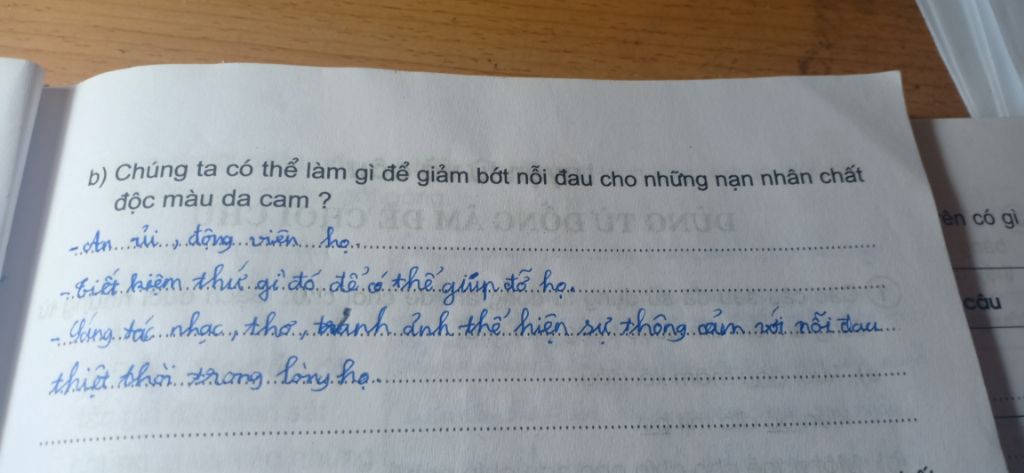 b) Chúng ta có thể làm gì để giảm bớt nỗi đau cho những nạn nhân chất
độc màu da cam ?
- An ủi, động viên họ.
- Tiết kiệm thứ gì đó để có thể giúp đỡ họ.
- Sáng tác nhạc, thơ, tranh ảnh thể hiện sự thông cảm với nỗi đau
thiệt thòi trong lòng họ.
ên có gì
câu